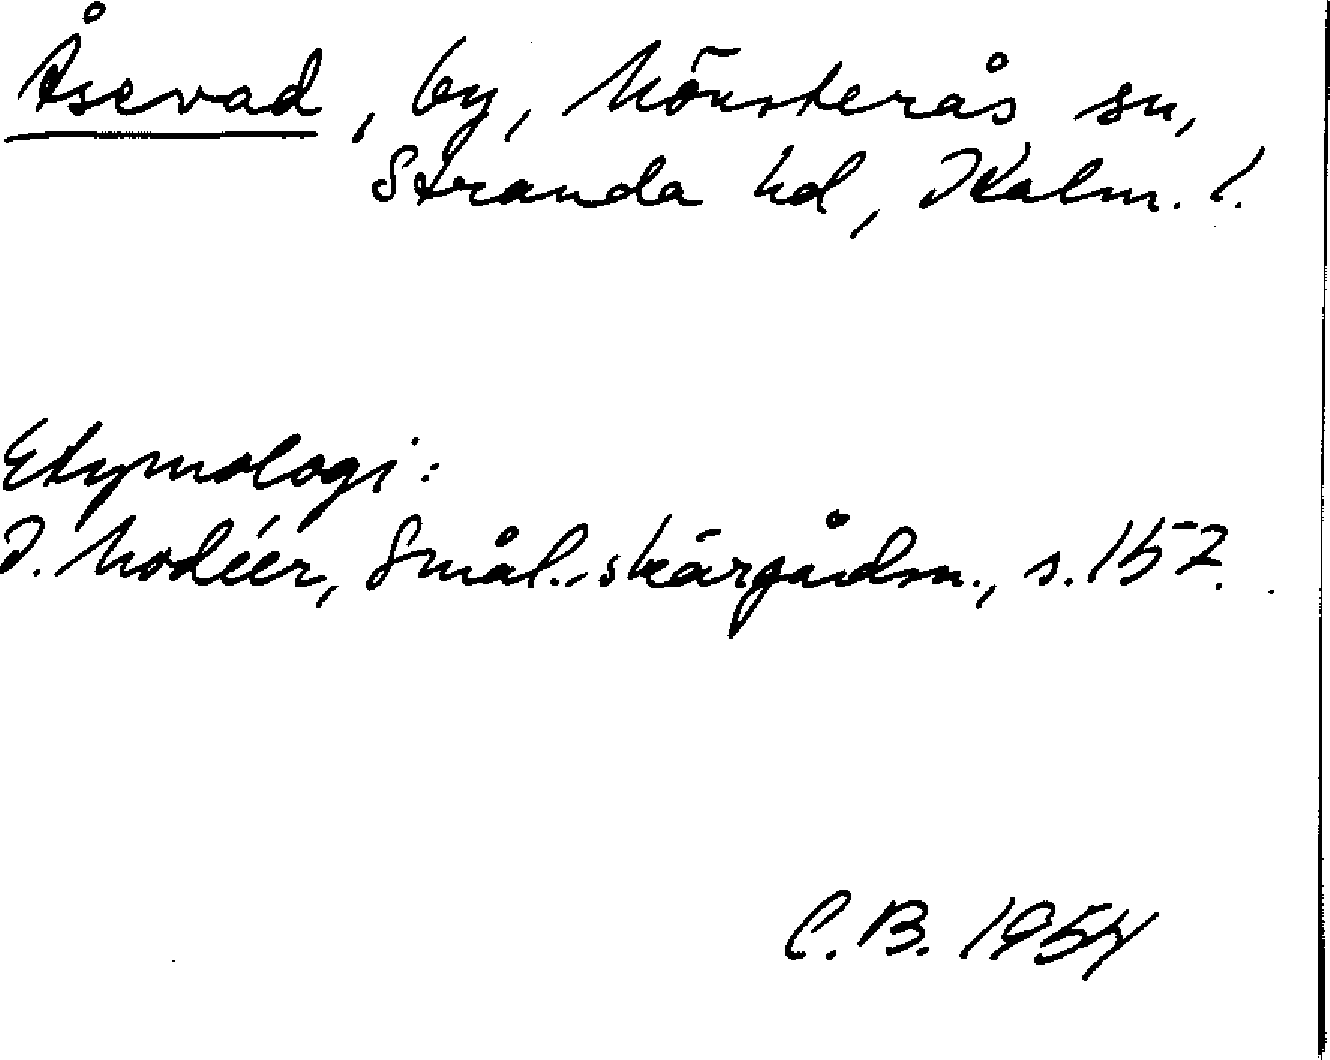 Åsevad, by, Mönsterås sn,
Stranda hd, Kalm. l.
Etymologi:
I. Modéer, Smål. skärgårdsn., s. 157.
C.B. 1954